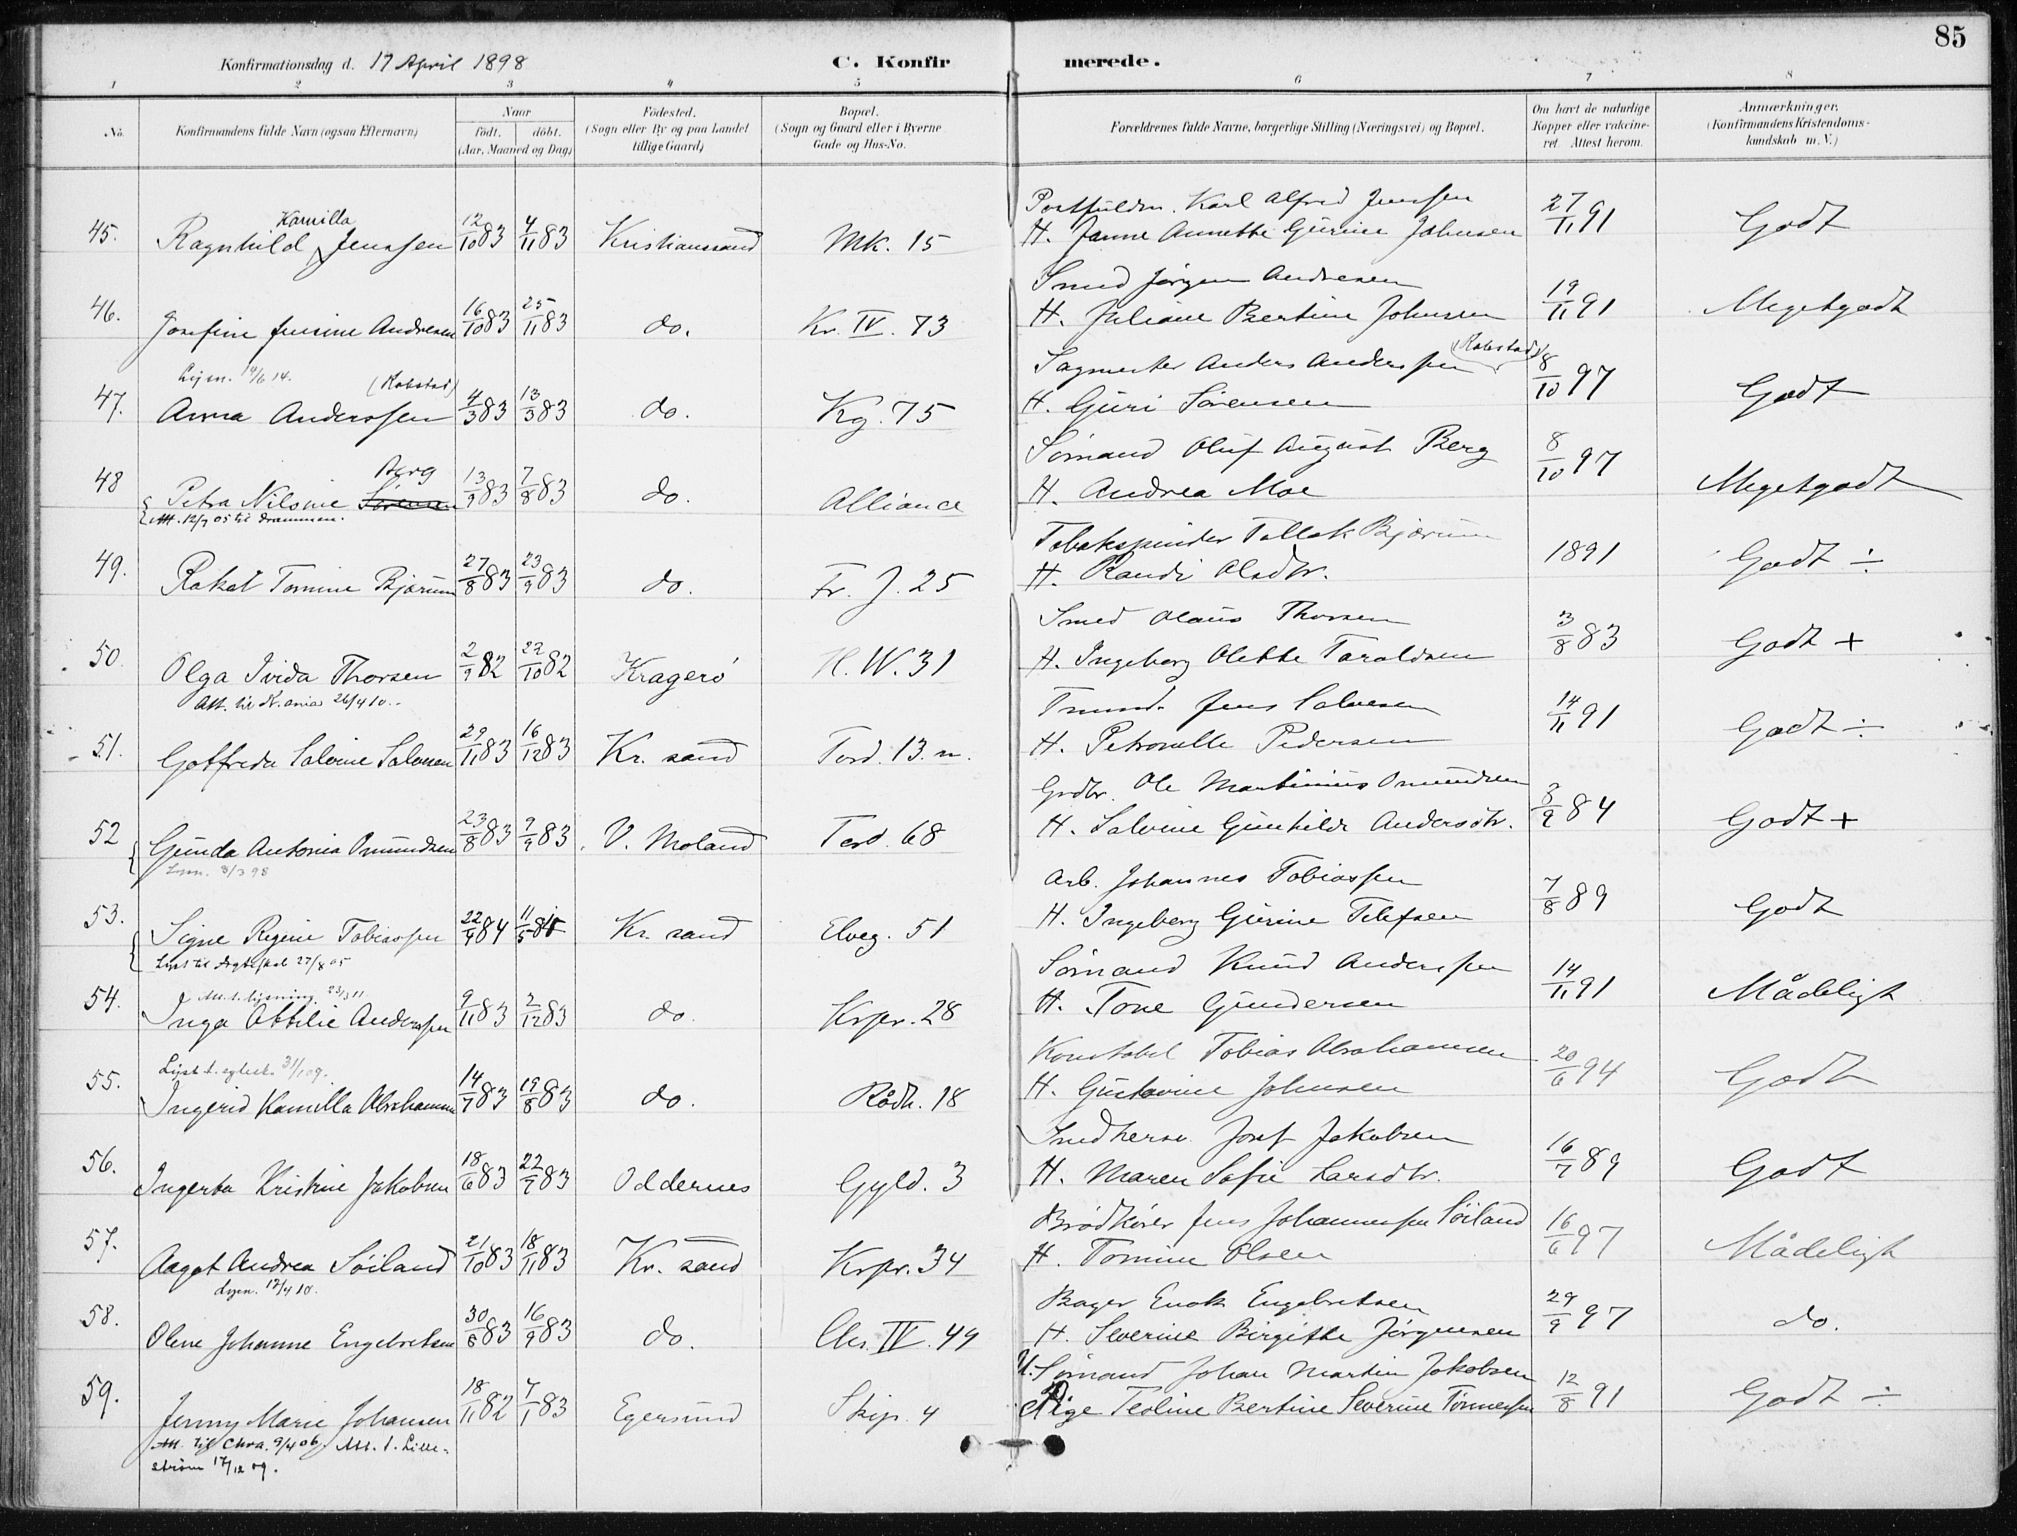 85
Konfirmationsdag d. 17 April 1898 C. Konfirmerede.
1 2 3 4 5 6 7 8
No. Konfirmandens fulde Navn (ogsaa Efternavn) Naar födt. döbt. (Aar, Maaned og Dag) Födested. (Sogn eller By og paa Landet tillige Gaard) Bopæl. (Sogn og Gaard eller i Byerne Gade og Hus-No. Forældrenes fulde Navne, borgerlige Stilling (Næringsvei) og Bopæl. Om havt de naturlige Kopper eller vakcineret Attest herom. Anmærkninger. (Konfirmandens Kristendomskundskab m. V.)
Kamilla Karl Alfred Jenssen
45. Ragnhild Jenssen 12/10 83 4/11 83 Kristianssand Mk. 15 H. Janne Annette Gurine Johnsen 27/11 91 Godt
Smed Jörgen Andresen
46. Josefine Andresen 16/10 83 25/11 83 do. Kr. IV. 73 H. Juliane Bertine Johnsen 19/11 91 Megetgodt
Lysn. 14/6 14. (Kobstad) Sagmester Anders Anderssen (Kobstad)
47. Anna Anderssen 4/3 83 13/3 83 do. Kg. 75 H. Guri Sörensen 8/10 97 Godt
Berg Sömand Oluf August Berg
48 Petra Nilsine 13/9 83 7/8 83 do. Alliance H. Andrea Moe 8/10 97 Megetgodt
Att. 12/9 05 til Drammen.
Tobakspinder Tallak Bjorum
49. Rakel Tomine Bjorum 27/8 83 23/9 83 do. Fr. J. 25 H. Randi Olsdtr. 1891 Godt ÷
Smed Olaus Thorsen
50 Olga Ivida Thorsen 2/9 82 22/10 82 Kragerö H. W. 31 H. Ingeborg Olette Taraldsen 3/8 83 Godt +
Att. til Kr.ania 26/4 10.
Tmmd. Jens Salvesen
51. Gotfreda Salvine Salvesen 29/11 83 16/12 83 Kr. sand Tord. 13. n. H. Petronelle Pedersen 14/11 91 Godt ÷
Grdbr. Ole Martinius Omundsen
52 Gunda Antonia Omundsen 23/8 83 7/9 83 V. Moland Tord. 68 H. Salvine Gunhilde Andersdtr. 3/9 84 Godt +
3/3 98
Arb. Johannes Tobiassen
53. Signe Regine Tobiassen 22/9 84 11/5 85 Kr. sand Elveg. 51 H. Ingeborg Gurine Tellefsen 7/8 89 Godt
Lyst til Ægteskab 27/8 05
Att. t. lysning 23/3 11 Sömand Knud Anderssen
54. Inga Ottilie Anderssen 9/11 83 2/12 83 do Krpr. 28 H. Tone Gundersen 14/11 91 Mådeligt
Lyst t. egtesk. 31/1 09. Konstabel Tobias Abrahamsen
55. Ingerid Kamilla Abrahamsen 14/7 83 19/8 83 do. Rådh. 18 H. Gustavine Johnsen 20/6 94 Godt
Smedkersv. Josef Jakobsen
56. Ingerta Kristine Jakobsen 18/6 83 22/7 83 Oddernes Gyld. 3 H. Maren Sofie Larsdtr. 16/7 89 Godt
Brödkörer Jens Johannessen Söiland
57. Aagot Andrea Söiland 21/10 83 18/11 83 Kr. sand Krpr. 34 H. Tomine Olsen 16/6 97 Mådeligt
Lysn. 17/4 10.
Bager Enok Engebretsen
58. Olene Johanne Engebretsen 30/8 83 16/9 83 do. Chr. IV. 49 H. Severine Birgitte Jörgensen 29/9 97 do.
U. Sömand Johan Martin Jakobsen
59. Jenny Marie Johansen 18/11 82 7/1 83 Egersund Skip. 4 Pige Teoline Bertine Severine Tönnessen 12/8 91 Godt ÷
Att. til Chra. 9/4 06. Att. t. Lille-
ström 17/12 09.